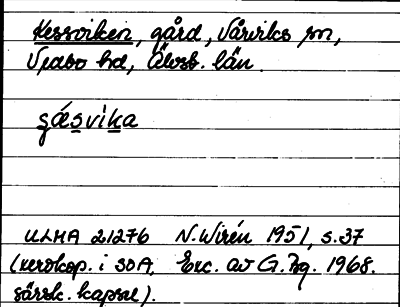 Kessviken, gård, Vårviks sn,
Vedbo hd, Älvsb. län.
gǻsvika
ULMA 21276 N. Wirén 1951, s. 37
(xeroxkop. i SOA, Exc. av G. Bg. 1968.
särsk. kapsel).